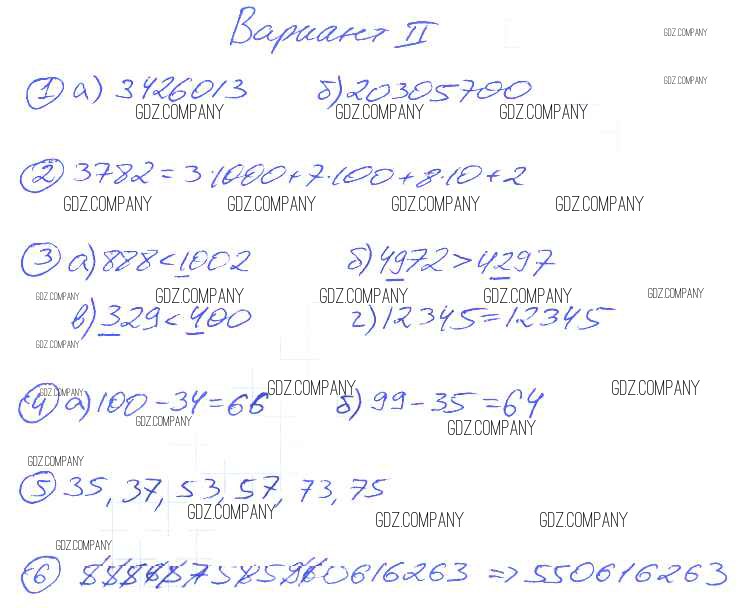 Вариант II
GDZ.COMPANY
1 а) 3426013 б) 20305700
GDZ.COMPANY
GDZ.COMPANY GDZ.COMPANY GDZ.COMPANY
2 3782 = 3·1000 + 7·100 + 8·10 + 2
GDZ.COMPANY GDZ.COMPANY GDZ.COMPANY GDZ.COMPANY
3 а) 888 < 1002 б) 4972 > 4297
GDZ.COMPANY GDZ.COMPANY GDZ.COMPANY GDZ.COMPANY GDZ.COMPANY
в) 329 < 400 г) 12345 = 12345
GDZ.COMPANY
GDZ.COMPANY GDZ.COMPANY GDZ.COMPANY
4 а) 100 - 34 = 66 б) 99 - 35 = 64
GDZ.COMPANY GDZ.COMPANY
GDZ.COMPANY
5 35, 37, 53, 57, 73, 75
GDZ.COMPANY GDZ.COMPANY GDZ.COMPANY
GDZ.COMPANY
6 0616263 => 550616263